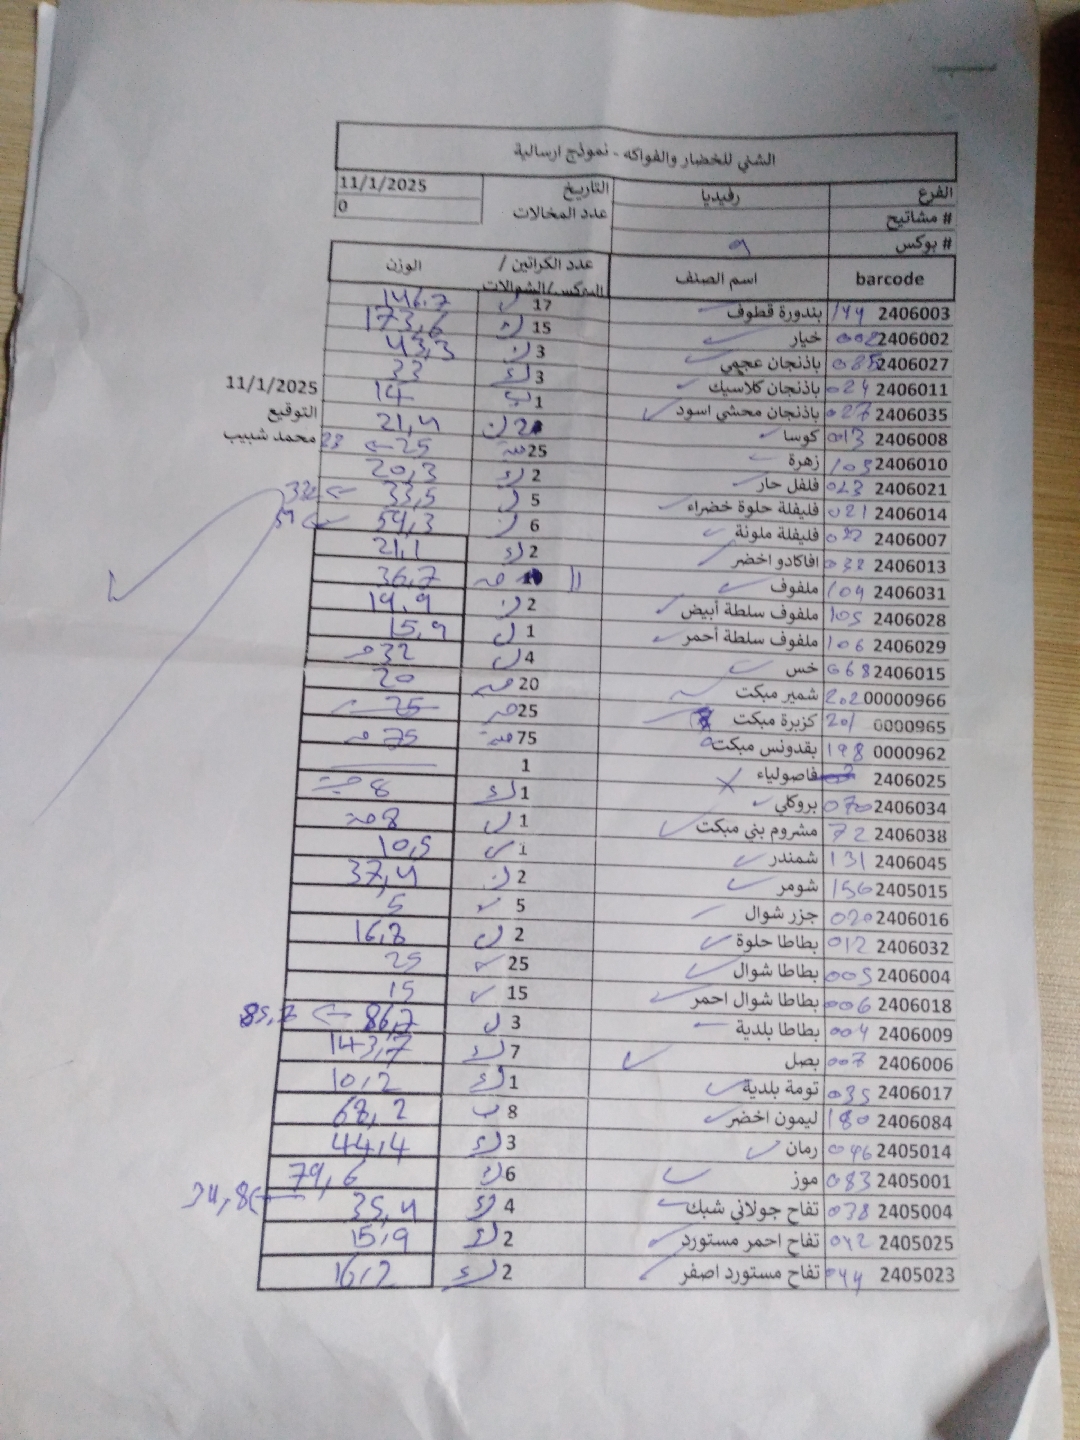 الشني للخضار والفواكه - نموذج ارسالية
الفرع رفيديا التاريخ 11/1/2025
# مشاتيح عدد المخالات 0
# بوكس 9
barcode اسم الصنف عدد الكراتين / البوكس/الشوالات الوزن
2406003 144 بندورة قطوف 17 146,7
2406002 002 خيار 15 173,6
2406027 باذنجان عجمي 3 43,3
2406011 024 باذنجان كلاسيك 3 33
2406035 027 باذنجان محشي اسود 1 14
2406008 013 كوسا 2 21,4
2406010 103 زهرة 25 25 ← 23
2406021 023 فلفل حار 2 20,3
2406014 021 فليفلة حلوة خضراء 5 33,5 ←
2406007 022 فليفلة ملونة 6 59,3 ←
2406013 032 افاكادو اخضر 2 21,1
2406031 104 ملفوف 11 36,7
2406028 105 ملفوف سلطة أبيض 2 19,9
2406029 106 ملفوف سلطة أحمر 1 15,9
2406015 068 خس 4 32
00000966 202 شمير مبكت 20 20
0000965 201 كزبرة مبكت 25 25
0000962 198 بقدونس مبكت 75 75
2406025 فاصولياء 1
2406034 070 بروكلي 1 8
2406038 72 مشروم بني مبكت 1 8
2406045 131 شمندر 1 10,5
2405015 156 شومر 2 37,4
2406016 020 جزر شوال 5 5
2406032 012 بطاطا حلوة 2 16,8
2406004 005 بطاطا شوال 25 25
2406018 006 بطاطا شوال احمر 15 15
2406009 004 بطاطا بلدية 3 86,7 ←
2406006 007 بصل 7 143,7
2406017 035 تومة بلدية 1 10,2
2406084 180 ليمون اخضر 8 68,2
2405014 046 رمان 3 44,4
2405001 083 موز 6 79,6
2405004 038 تفاح جولاني شبك 4 35,4 ← 34,8
2405025 042 تفاح احمر مستورد 2 15,9
2405023 044 تفاح مستورد اصفر 2 16,2
11/1/2025
التوقيع
محمد شبيب